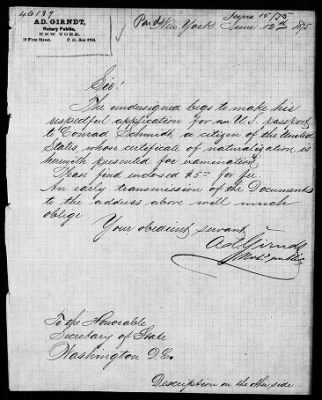 46189
AD. GIRNDT,
Notary Public,
NEW YORK.
P. O. Box 2794.
Paid June 15/75
New York June 12th 1875
Sir!
The undersigned begs to make his
respectful application for an U.S. passport
to Conrad Schmidt, a citizen of the United
States, whose certificate of naturalization is
herewith presented for examination.
Please find enclosed $5.00 for fee
An early transmission of the Documents
to the address above will much
oblige
Your obedient servant
Ad. Girndt
Not. public
To his Honorable
Secretary of State
Washington D.C.
Description on the other side